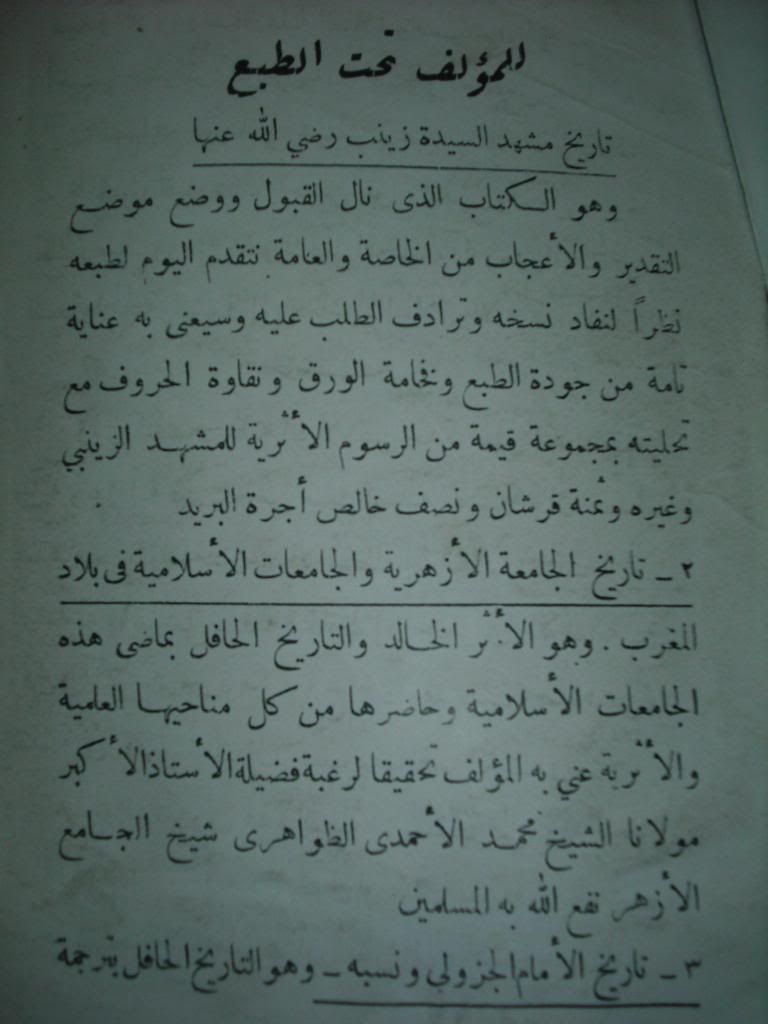 للمؤلف تحت الطبع
تاريخ مشهد السيدة زينب رضي الله عنها
وهو الكتاب الذى نال القبول ووضع موضع
التقدير والأعجاب من الخاصة والعامة نتقدم اليوم لطبعه
نظراً لنفاد نسخه وترادف الطلب عليه وسيعنى به عناية
تامة من جودة الطبع وفخامة الورق ونقاوة الحروف مع
تحليته بمجموعة قيمة من الرسوم الأثرية للمشهد الزينبي
وغيره وثمنة قرشان ونصف خالص أجرة البريد
٢ ـ تاريخ الجامعة الأزهرية والجامعات الأسلامية فى بلاد
المغرب . وهو الأثر الخالد والتاريخ الحافل بماضى هذه
الجامعات الأسلامية وحاضرها من كل مناحيها العامية
والأثرية عني به المؤلف تحقيقا لرغبة فضيلة الأستاذ الأكبر
مولانا الشيخ محمد الأحمدى الظواهرى شيخ الجامع
الأزهر نفع الله به المسلمين
٣ ـ تاريخ الأمام الجزولي ونسبه ـ وهو التاريخ الحافل بترجمة